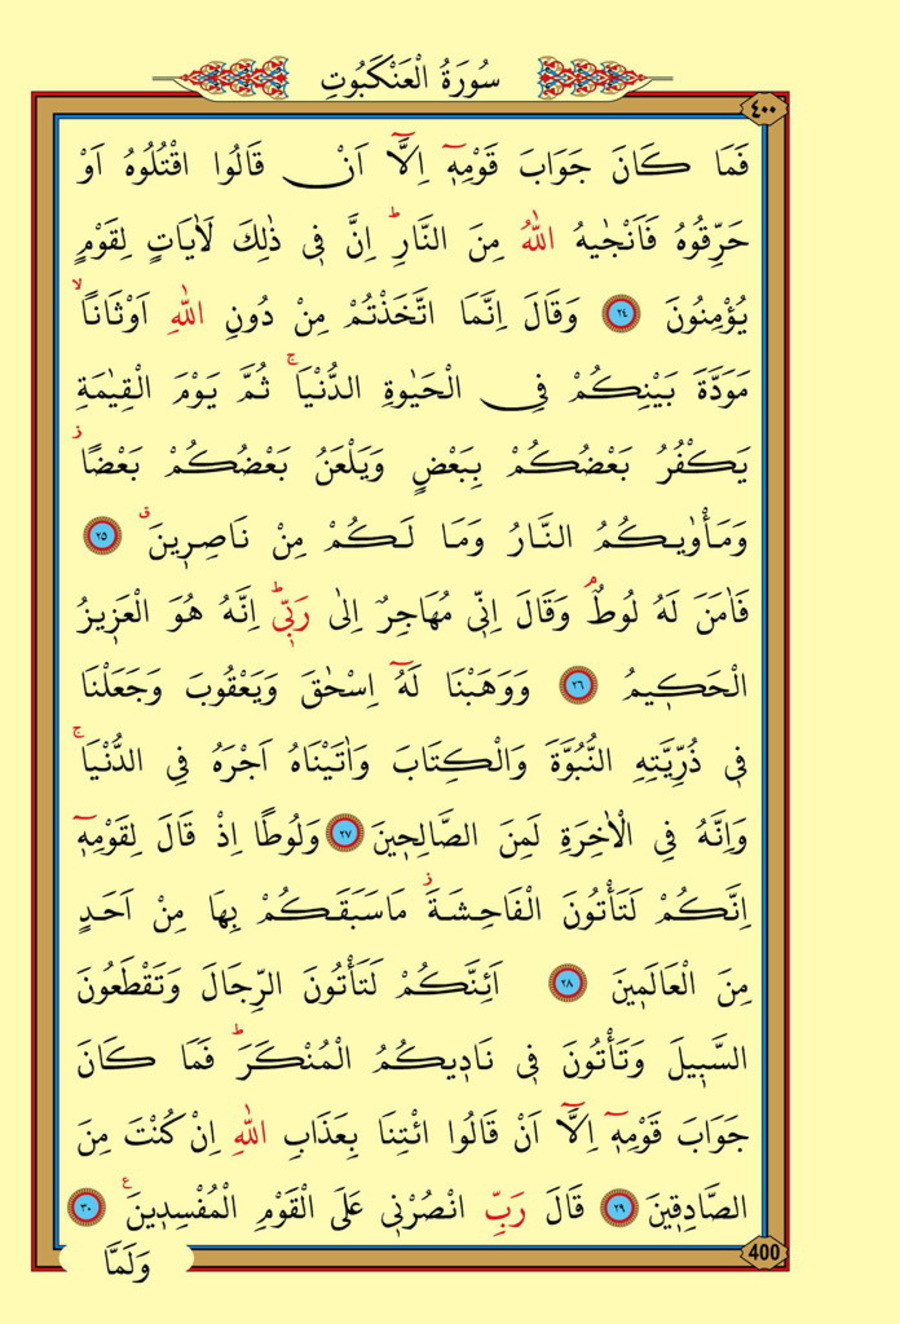 سُورَةُ الْعَنْكَبُوتِ
٤٠٠
فَمَا كَانَ جَوَابَ قَوْمِه۪ٓ اِلَّٓا اَنْ قَالُوا اقْتُلُوهُ اَوْ
حَرِّقُوهُ فَاَنْجٰيهُ اللّٰهُ مِنَ النَّارِۜ اِنَّ ف۪ي ذٰلِكَ لَاٰيَاتٍ لِقَوْمٍ
يُؤْمِنُونَ ﴿٢٤﴾ وَقَالَ اِنَّمَا اتَّخَذْتُمْ مِنْ دُونِ اللّٰهِ اَوْثَانًاۙ
مَوَدَّةَ بَيْنِكُمْ فِي الْحَيٰوةِ الدُّنْيَاۚ ثُمَّ يَوْمَ الْقِيٰمَةِ
يَكْفُرُ بَعْضُكُمْ بِبَعْضٍ وَيَلْعَنُ بَعْضُكُمْ بَعْضًاۘ
وَمَأْوٰيكُمُ النَّارُ وَمَا لَكُمْ مِنْ نَاصِر۪ينَۗ ﴿٢٥﴾
فَاٰمَنَ لَهُ لُوطٌۢ وَقَالَ اِنّ۪ي مُهَاجِرٌ اِلٰى رَبّ۪يۜ اِنَّهُ هُوَ الْعَز۪يزُ
الْحَك۪يمُ ﴿٢٦﴾ وَوَهَبْنَا لَهُٓ اِسْحٰقَ وَيَعْقُوبَ وَجَعَلْنَا
ف۪ي ذُرِّيَّتِهِ النُّبُوَّةَ وَالْكِتَابَ وَاٰتَيْنَاهُ اَجْرَهُ فِي الدُّنْيَاۚ
وَاِنَّهُ فِي الْاٰخِرَةِ لَمِنَ الصَّالِح۪ينَ ﴿٢٧﴾ وَلُوطًا اِذْ قَالَ لِقَوْمِه۪ٓ
اِنَّكُمْ لَتَأْتُونَ الْفَاحِشَةَۘ مَاسَبَقَكُمْ بِهَا مِنْ اَحَدٍ
مِنَ الْعَالَم۪ينَ ﴿٢٨﴾ اَئِنَّكُمْ لَتَأْتُونَ الرِّجَالَ وَتَقْطَعُونَ
السَّب۪يلَ وَتَأْتُونَ ف۪ي نَاد۪يكُمُ الْمُنْكَرَۜ فَمَا كَانَ
جَوَابَ قَوْمِه۪ٓ اِلَّٓا اَنْ قَالُوا ائْتِنَا بِعَذَابِ اللّٰهِ اِنْ كُنْتَ مِنَ
الصَّادِق۪ينَ ﴿٢٩﴾ قَالَ رَبِّ انْصُرْن۪ي عَلَى الْقَوْمِ الْمُفْسِد۪ينَۚ ﴿٣٠﴾
وَلَمَّا
400